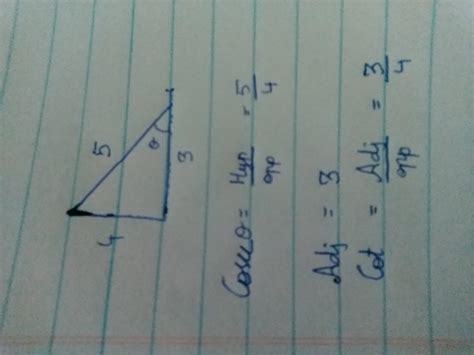 5
θ
3
4
Cosecθ = Hyp/opp = 5/4
Adj = 3
Cot = Adj/opp = 3/4